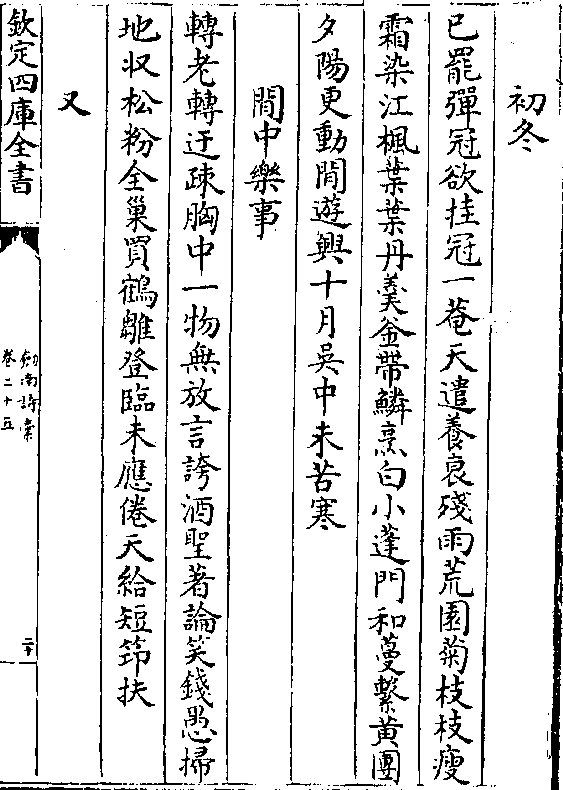 初冬
已罷彈冠欲挂冠一菴天遣養衰殘雨荒園菊枝枝瘦
霜染江楓葉葉丹羹釡帶鱗烹白小蓬門和蔓繫黄團
夕陽更動閒遊興十月吳中未苦寒
閒中樂事
轉老轉迂疎胸中一物無放言誇酒聖著論笑錢愚掃
地收松粉全巢買鶴雛登臨未應倦天給短筇扶
又
欽定四庫全書
劍南詩槀
卷二十五
二十